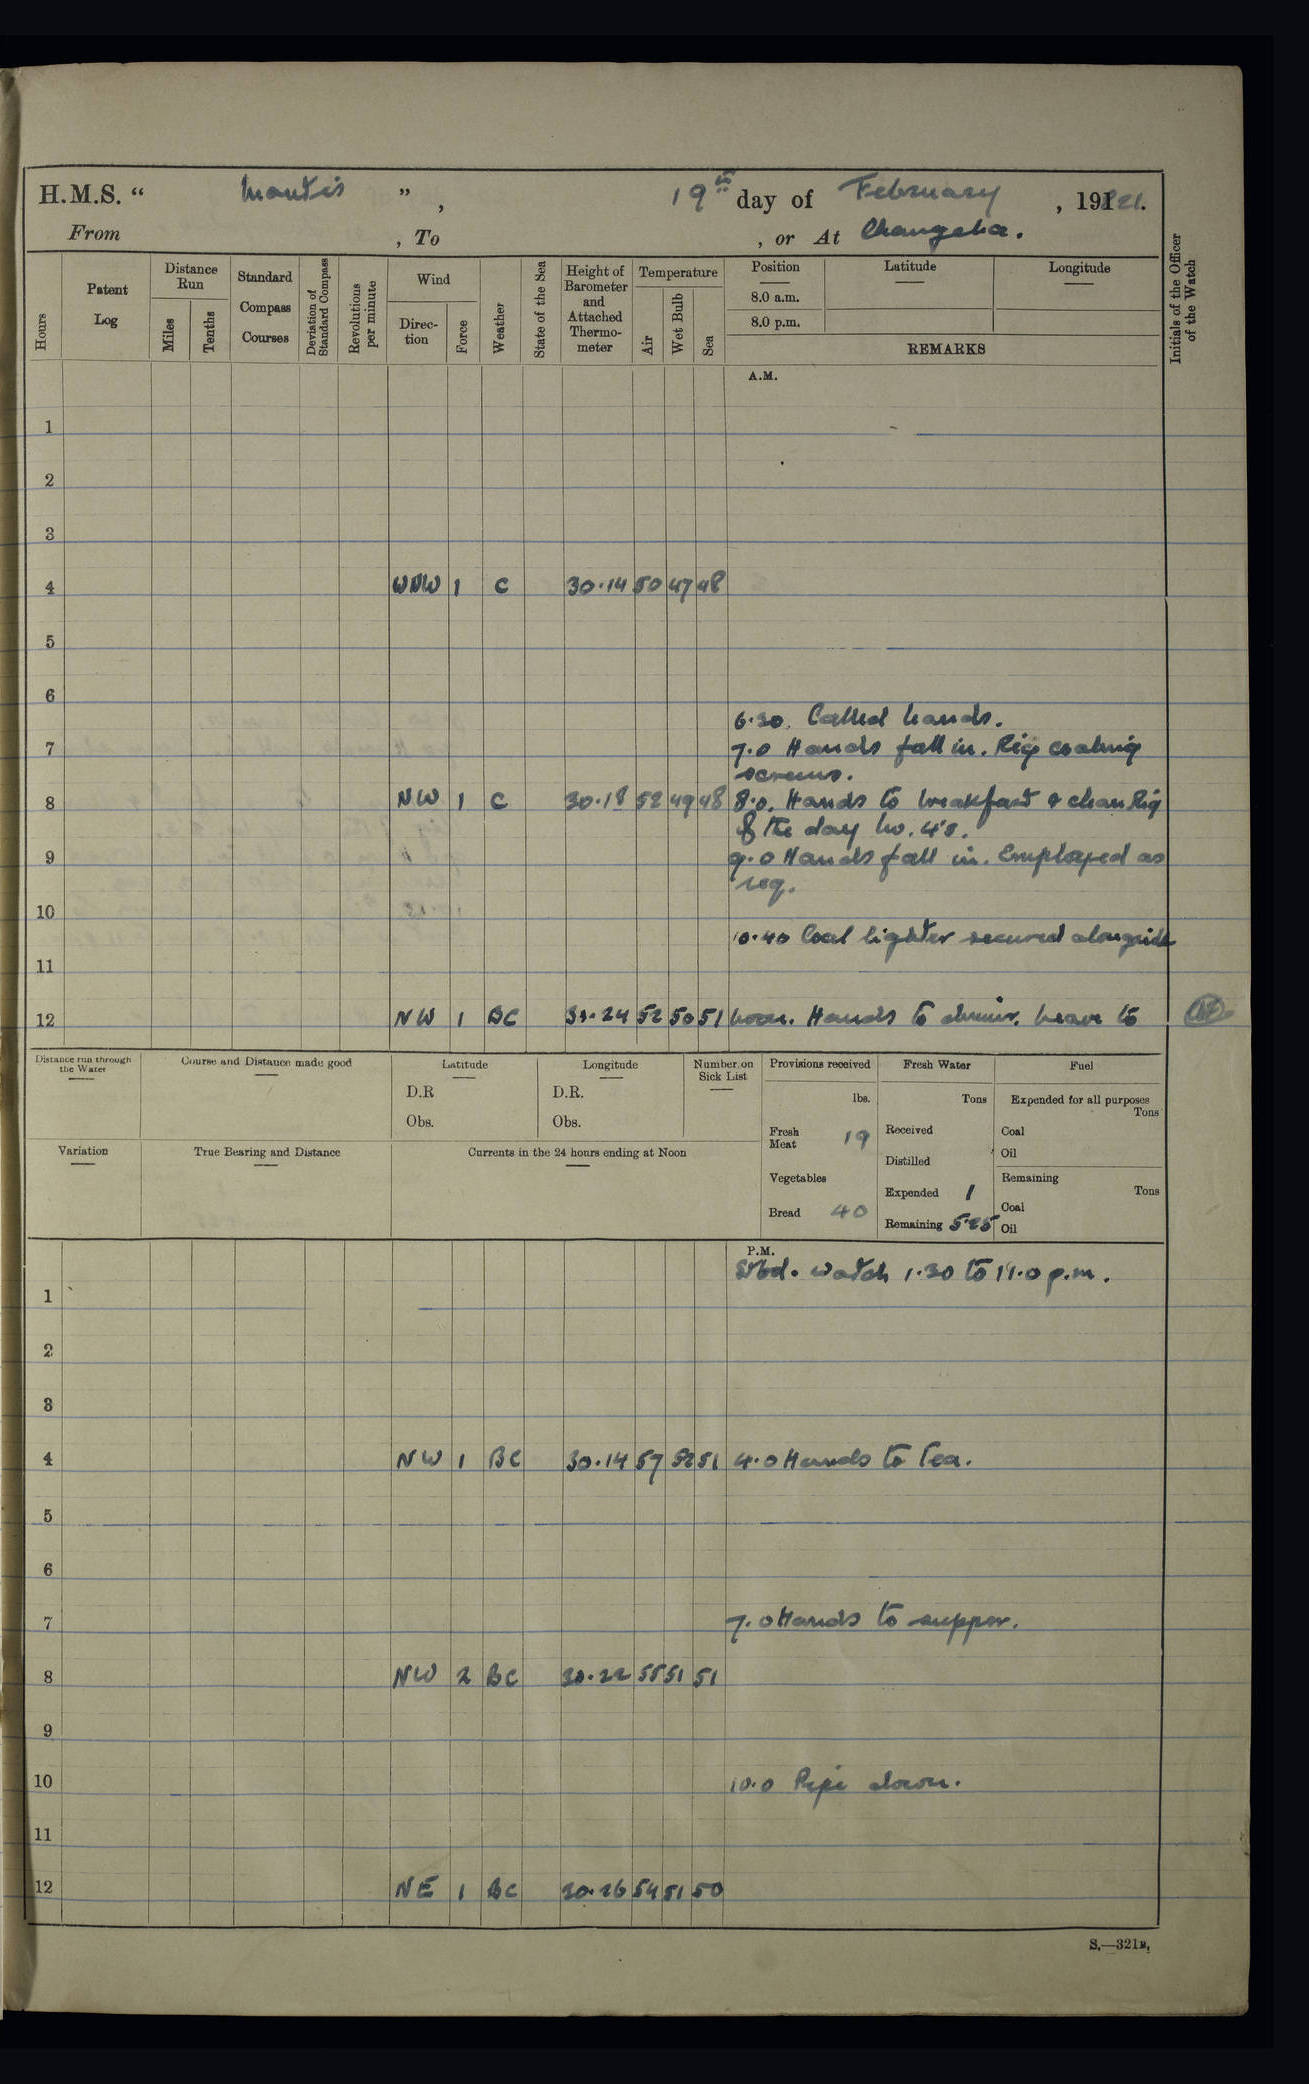 H.M.S. “ Mantis ” , 19th day of February , 191921.
From , To , or At Changsha.
Hours
Patent Log
Distance Run
Miles
Tenths
Standard Compass Courses
Deviation of Standard Compass
Revolutions per minute
Wind
Direc- tion
Force
Weather
State of the Sea
Height of Barometer and Attached Thermo- meter
Temperature
Air
Wet Bulb
Sea
Position
8.0 a.m.
8.0 p.m.
Latitude
Longitude
REMARKS
Initials of the Officer of the Watch
A.M.
1
2
3
4 WNW 1 C 30.14 50 47 48
5
6
6.30. Called hands.
7 7.0 Hands fall in. Rig coaling
screens.
8 NW 1 C 30.18 52 49 48 8.0. Hands to breakfast & clean Rig
of the day No. 4's.
9 9.0 Hands fall in. Employed as
req.
10
10.40 Coal lighter secured alongside
11
12 NW 1 BC 30.24 52 50 51 Noon. Hands to dinner. Leave to
Distance run through the Water
Course and Distance made good
Latitude
D.R
Obs.
Longitude
D.R.
Obs.
Number on Sick List
Provisions received
lbs.
Fresh Meat 19
Vegetables
Bread 40
Fresh Water
Tons
Received
Distilled
Expended 1
Remaining 5.25
Fuel
Expended for all purposes
Tons
Coal
Oil
Remaining
Tons
Coal
Oil
Variation
True Bearing and Distance
Currents in the 24 hours ending at Noon
P.M.
Stbd. watch 1.30 to 11.0 p.m.
1
2
3
4 NW 1 BC 30.14 57 52 51 4.0 Hands to Tea.
5
6
7 7.0 Hands to supper.
8 NW 2 BC 30.22 55 51 51
9
10 10.0 Pipe down.
11
12 NE 1 BC 30.26 54 51 50
S.—321B.